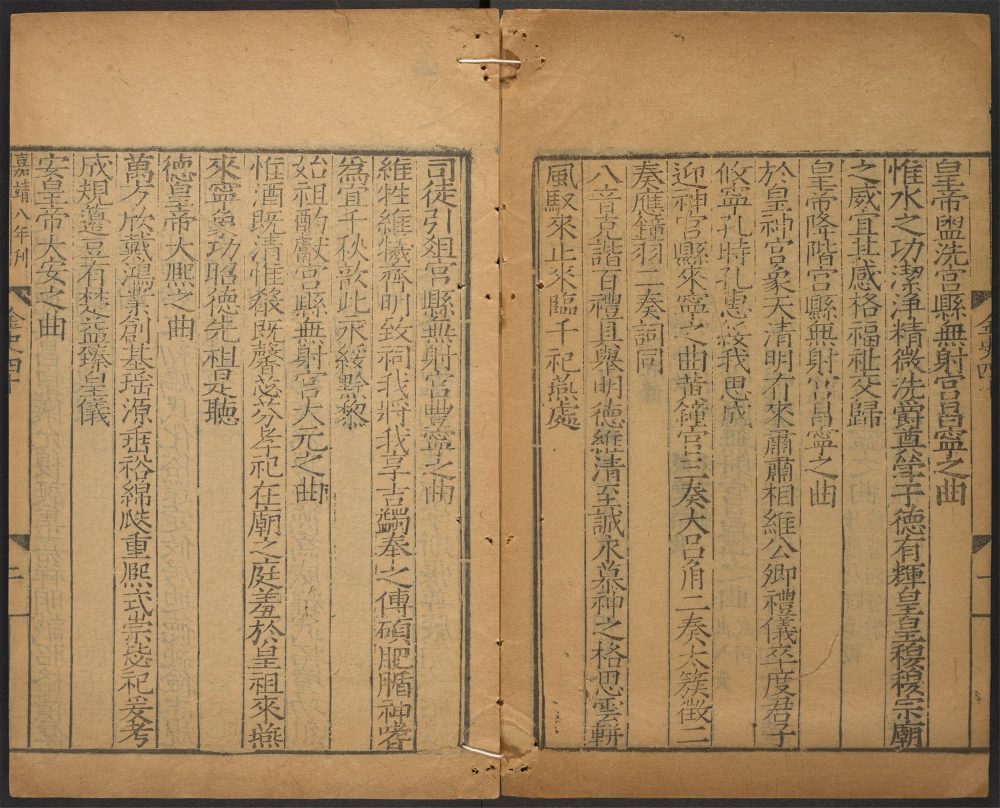 皇帝盥洗宮縣無射宮昌寧之曲
惟水之功潔淨精微洗爵奠斝于德有輝皇皇穆穆宗廟
之威宜其感格福祉交歸
皇帝降階宮縣無射宮昌寧之曲
於皇神宮象天清明冇來肅肅相維公卿禮儀卒度君子
攸寧孔時孔惠綏我思成
迎神宮縣來寧之曲黃鐘宮三奏大呂角二奏太簇徵二
奏應鐘羽二奏詞同
八音克諧百禮具舉明德維清至誠永慕神之格思雲軿
風馭來止來臨千祀燕處
司徒引俎宮縣無射宮豐寧之曲
維牲維犧齊明致祠我將我享吉蠲奉之傅碩肥腯神嗜
爲宜千秋歆此永綏黔黎
始祖酌獻宮縣無射宮大元之曲
惟酒既清惟殽既馨苾芬孝祀在廟之庭羞於皇祖來燕
來寧象功昭德先祖是聽
德皇帝大熙之曲
萬方欣戴鴻業創基瑤源垂裕綿瓞重熙式崇毖祀爰考
成規籩豆有楚益臻皇儀
安皇帝大安之曲
嘉靖八年刊